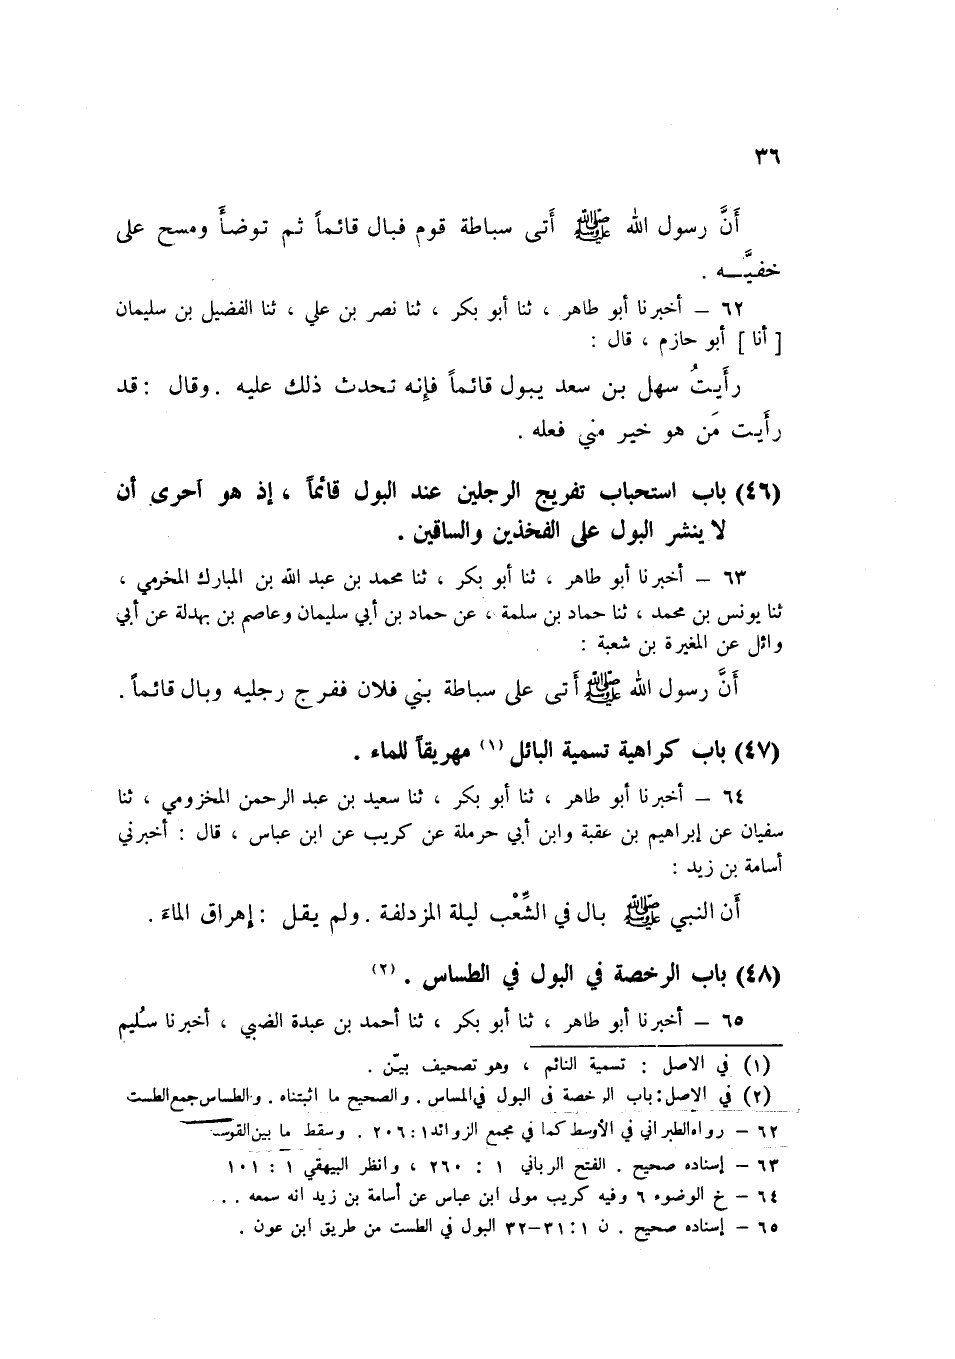 ٣٦
أَنَّ رسول الله ﷺ أَتى سباطة قوم فبال قائماً ثم توضأَ ومسح على
خفيَّــه .
٦٢ – أخبرنا أبو طاهر ، ثنا أبو بكر ، ثنا نصر بن علي ، ثنا الفضيل بن سليمان
[ أنا ] أبو حازم ، قال :
رأَيتُ سهل بن سعد يبول قائماً فإِنه تحدث ذلك عليه . وقال : قد
رأَيت مَن هو خير مني فعله .
(٤٦) باب استحباب تفريج الرجلين عند البول قائماً ، إذ هو أحرى أن
لا ينشر البول على الفخذين والساقين .
٦٣ – أخبرنا أبو طاهر ، ثنا أبو بكر ، ثنا محمد بن عبد الله بن المبارك المخرمي ،
ثنا يونس بن محمد ، ثنا حماد بن سلمة ، عن حماد بن أبي سليمان وعاصم بن بهدلة عن أبي
وائل عن المغيرة بن شعبة :
أَنَّ رسول الله ﷺ أَتى على سباطة بني فلان ففرج رجليه وبال قائماً .
(٤٧) باب كراهية تسمية البائل (١) مهريقاً للماء .
٦٤ – أخبرنا أبو طاهر ، ثنا أبو بكر ، ثنا سعيد بن عبد الرحمن المخزومي ، ثنا
سفيان عن إبراهيم بن عقبة وابن أبي حرملة عن كريب عن ابن عباس ، قال : أخبرني
أسامة بن زيد :
أَن النبي ﷺ بال في الشِّعْب ليلة المزدلفة . ولم يقل : إهراق الماءَ .
(٤٨) باب الرخصة في البول في الطساس . (٢)
٦٥ – أخبرنا أبو طاهر ، ثنا أبو بكر ، ثنا أحمد بن عبدة الضبي ، أخبرنا سُليم
(١) في الاصل : تسمية النائم ، وهو تصحيف بيّن .
(٢) في الاصل : باب الرخصة في البول في المساس . والصحيح ما اثبتناه . والطساس جمع الطست
٦٢ – رواه الطبراني في الأوسط كما في مجمع الزوائد ١ : ٢٠٦ . وسقط ما بين القوسين
٦٣ – إسناده صحيح . الفتح الرباني ١ : ٢٦٠ ، وانظر البيهقي ١ : ١٠١
٦٤ – خ الوضوء ٦ وفيه كريب مولى ابن عباس عن أسامة بن زيد انه سمعه . . .
٦٥ – إسناده صحيح . ن ١ : ٣١–٣٢ البول في الطست من طريق ابن عون .